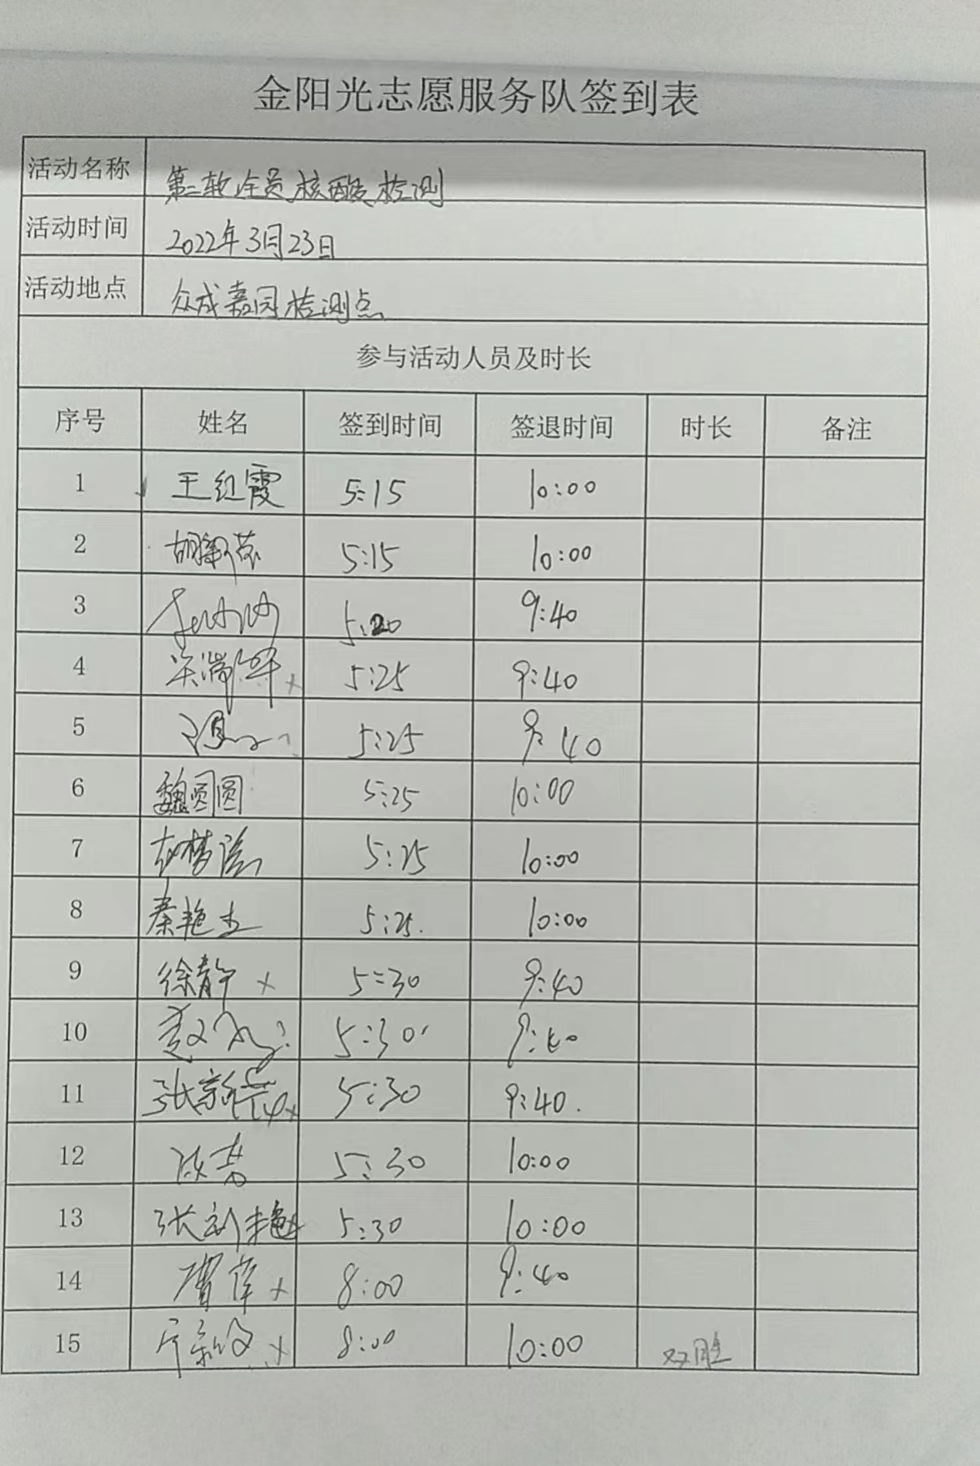 金阳光志愿服务队签到表
活动名称 第二轮全员核酸检测
活动时间 2022年3月23日
活动地点 众成嘉园检测点
参与活动人员及时长
序号 姓名 签到时间 签退时间 时长 备注
1 王红霞 5:15 10:00
2 5:15 10:00
3 5:20 9:40
4 5:25 9:40
5 5:25 9:40
6 魏圆圆 5:25 10:00
7 5:25 10:00
8 秦艳 5:25. 10:00
9 徐静 x 5:30 9:40
10 5:30 9:40
11 张 x 5:30 9:40.
12 5:30 10:00
13 张 艳 5:30 10:00
14 x 8:00 9:40
15 x 8:00 10:00